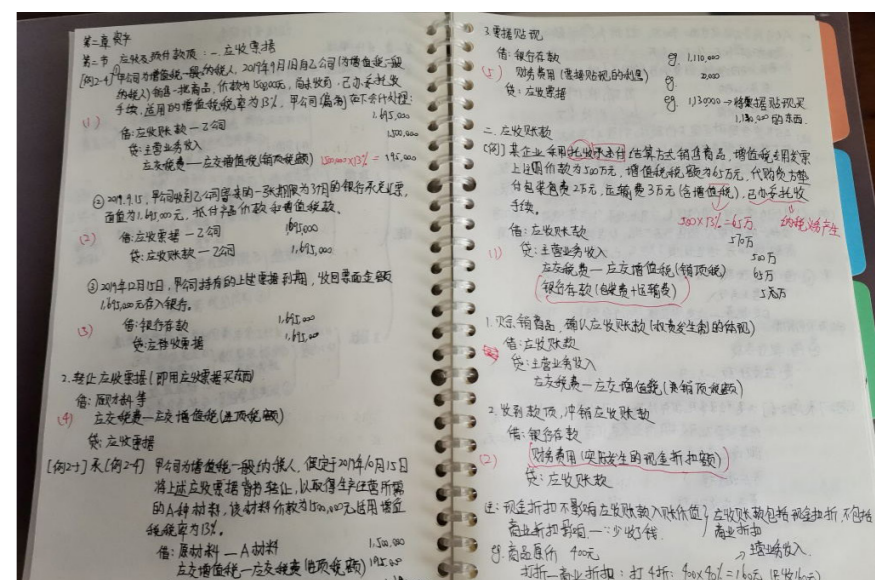 第二章 资产
第二节 应收及预付款项：一.应收票据
[例2-4] ①甲公司为增值税一般纳税人，2019年9月1日向乙公司(为增值税一般
纳税人)销售一批商品，价款为1500,000元，尚未收到，已办妥托收
手续，适用的增值税税率为13%，甲公司
(1) 借：应收账款—乙公司 1,695,000
贷：主营业务收入 1,500,000
应交税费—应交增值税(销项税额) 1500,000×13% = 195,000
②2019.9.15，甲公司收到乙公司寄来的一张期限为3月的银行承兑汇票，
面值为1,695,000元，抵付产品价款和增值税款。
(2) 借：应收票据—乙公司 1,695,000
贷：应收账款—乙公司 1,695,000
③2019年12月15日，甲公司持有的上述票据到期，收回票面金额
1,695,000元存入银行。
(3) 借：银行存款 1,695,000
贷：应收票据 1,695,000
2.转让应收票据(即用应收票据买东西)
借：原材料等
(4) 应交税费—应交增值税(进项税额)
贷：应收票据
[例2-5] 承[例2-4] 甲公司为增值税一般纳税人，假定于2019年10月15日
将上述应收票据背书转让，以取得生产经营所需
的A种材料，该材料价款为1,500,000元适用增值
税税率为13%。
借：原材料—A材料 1,500,000
应交增值税—应交税费(进项税额) 195,000
3.票据贴现
借：银行存款 eg. 1,110,000
(5) 财务费用(票据贴现的利息) eg. 20,000
贷：应收票据 eg. 1,130,000→将票据贴现买
1,130,000的东西.
二.应收账款
[例] 某企业采用托收承付结算方式销售商品，增值税专用发票
上注明价款为500万元，增值税税额为65万元，代购货方垫
付包装费2万元，运输费3万元(含增值税)，已办妥托收
手续。 500×13%=65万 纳税义务产生
借：应收账款 570万
(1) 贷：主营业务收入 500万
应交税费—应交增值税(销项税) 65万
银行存款(包装费+运输费) 5万
1.赊销商品，确认应收账款(权责发生制的体现)
借：应收账款
贷：主营业务收入
应交税费—应交增值税(销项税额)
2.收到款项，冲销应收账款
借：银行存款
(2) 财务费用(实际发生的现金折扣额)
贷：应收账款
注：现金折扣不影响应收账款入账价值 应收账款包括现金扣折，不包括
商业折扣影响—：少收了钱. 商业折扣
eg.商品原价 400元 →主营业务收入.
打折—商业折扣：打4折：400×40%=160元